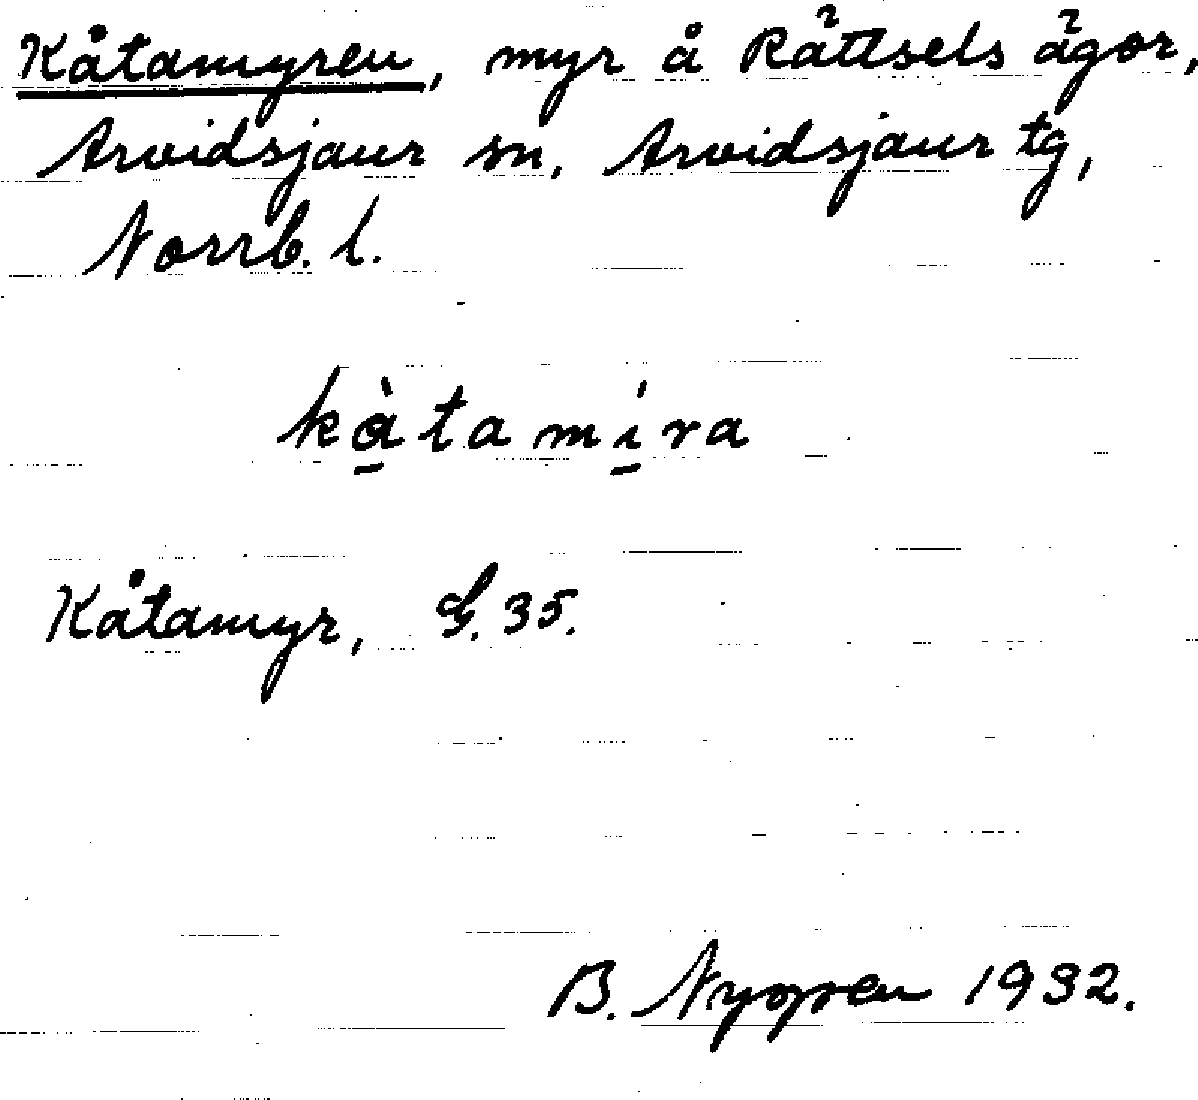 Kåtamyren, myr å Rättsels ägor,
Arvidsjaur sn, Arvidsjaur tg,
Norrb. l.
kàtamíra
Kåtamyr, G. 35.
B. 1932.